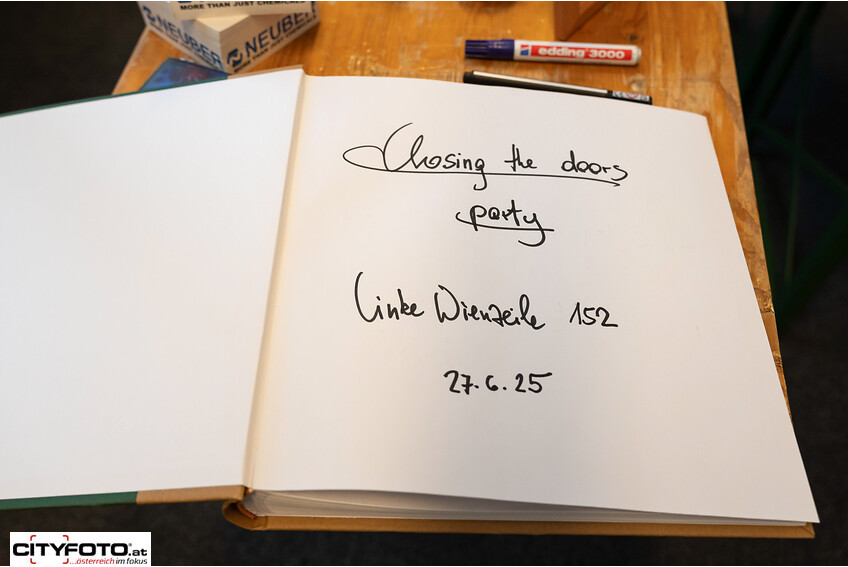 MORE THAN JUST CHEMICALS
NEUBER
NEUBER
edding 3000
Chosing the doors
party
Linke Wienzeile 152
27.6.25
CITYFOTO.at
...österreich im fokus